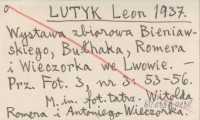 LUTYK Leon 1937.
Wystawa zbiorowa Bieniaw-
skiego, Bułhaka, Romera
i Wieczorka we Lwowie. —
Prz. Fot. 3, nr 3: 53-56.
M. in. fot. tatrz. Witolda
Romera i Antoniego Wieczorka.